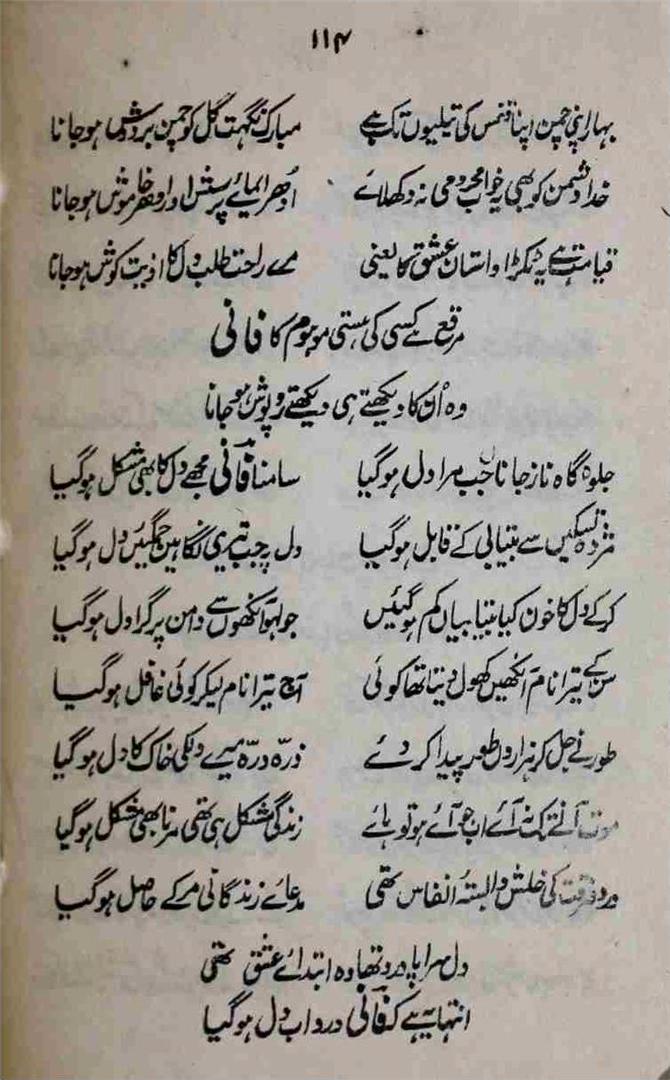 ۱۱۴
بہار اپنی چمن اپنا قفس کی تیلیوں تک ہے مبارک نگہت گل کو چمن بردوش ہو جانا
خدا دشمن کو بھی یہ خواب محرومی نہ دکھلائے ادھر ایمائے پرسش اور ادھر خاموش ہو جانا
قیامت ہے یہ ٹکڑا داستان عشق کا یعنی مے راحت طلب دل کا اذیت کوش ہو جانا
مرقع ہے کسی کی ہستی موہوم کا فانی
وہ اُن کا دیکھتے ہی دیکھتے روپوش ہو جانا
جلوہ گاہ ناز جاناں جب مرا دل ہو گیا سامنا فانی مجھے دل کا بھی مشکل ہو گیا
مژدہ تسکیں سے بیتابی کے قابل ہو گیا دل پہ جب تیری نگاہیں جم گئیں دل ہو گیا
کر کے دل کا خون کیا بیتابیاں کم ہو گئیں جو لہو آنکھوں سے دامن پر گرا دل ہو گیا
سن کے تیرا نام آنکھیں کھول دیتا تھا کوئی آج تیرا نام لیکر کوئی غافل ہو گیا
طور نے جل کر ہزاروں طور پیدا کر دئے ذرّہ ذرّہ میرے دل کی خاک کا دل ہو گیا
موت آنے تک نہ آئے اب جو آئے ہو تو ہائے زندگی مشکل ہی تھی مرنا بھی مشکل ہو گیا
درد فرقت کی خلش وابستۂ انفاس تھی مدعائے زندگانی مر کے حاصل ہو گیا
دل سراپا درد تھا وہ ابتدائے عشق تھی
انتہا یہ ہے کہ فانی درد اب دل ہو گیا